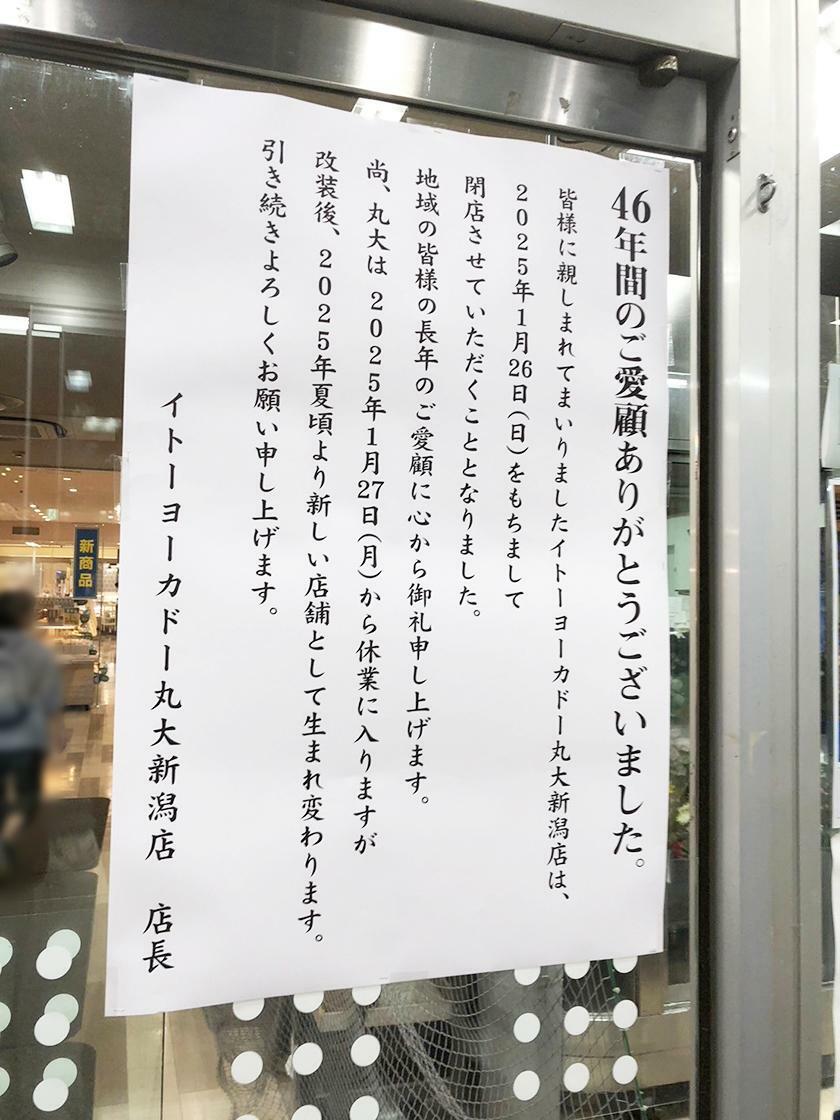 46年間のご愛顧ありがとうございました。
皆様に親しまれてまいりましたイトーヨーカドー丸大新潟店は、
2025年1月26日(日)をもちまして
閉店させていただくこととなりました。
地域の皆様の長年のご愛顧に心から御礼申し上げます。
尚、丸大は 2025年1月27日(月)から休業に入りますが
改装後、2025年夏頃より新しい店舗として生まれ変わります。
引き続きよろしくお願い申し上げます。
イトーヨーカドー丸大新潟店　店長
新商品